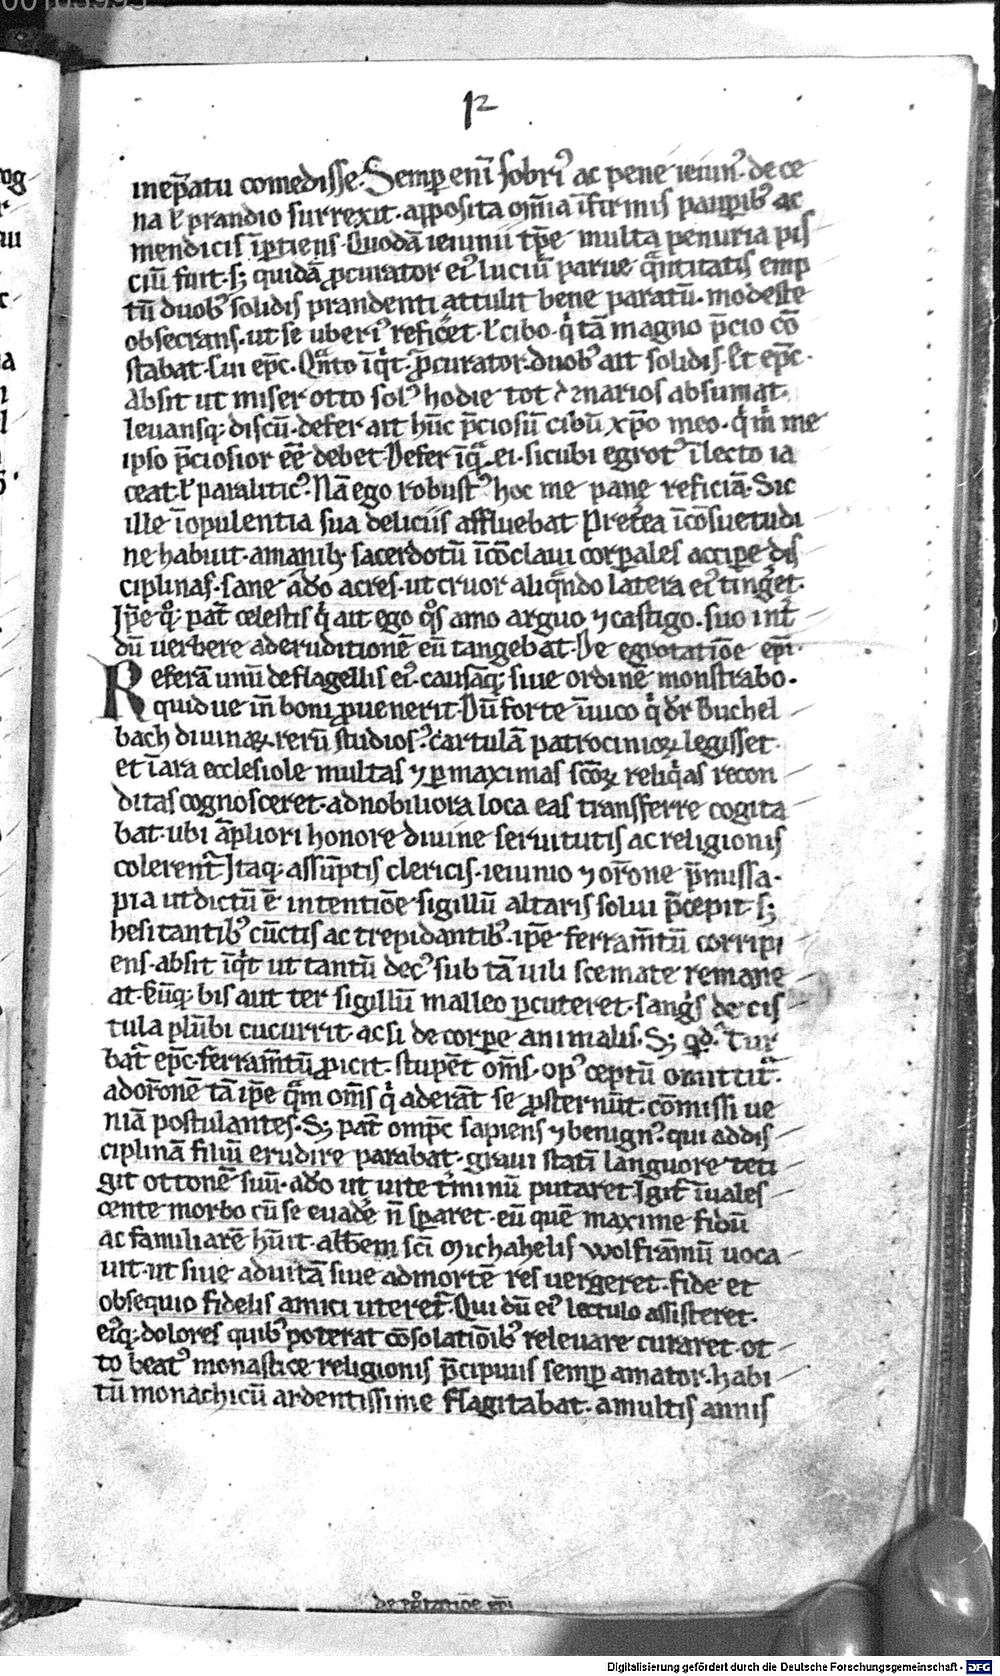 12
inep̄atu comedisse. Semp enī sobri᷒ ac pene ieiun᷒. de ce
na ł prandio surrexit. apposita om̄ia īfirmis paupib᷒ ac
mendicis īptiens. Quodā ieiunii tp̄e multa penuria pis
ciū fuit. s; quidā pcurator ei᷒ luciū parue qͣntitatis emp
tū duob᷒ solidis prandenti attulit bene paratū. modeste
obsecrans. ut se uberi᷒ reficet. ł cibo. qͥ tā magno p̄cio cō
stabat. Cui ep̄c. Qͣnto īqͥt pcurator. duob᷒ ait solidis. Et ep̄c.
Absit ut miser otto sol᷒ hodie tot denarios absumat.
leuansq; discū. defer ait hūc p̄ciosū cibū xp̄o meo. qͥ m̄ me
ipso p̄ciosior ēē debet. Defer īqͣ ei. sicubi egrot᷒ ī lecto ia
ceat. ł paralitic᷒. Nā ego robust᷒ hoc me pane reficiā. Sic
ille ī opulentia sua deliciis affluebat. Pretea ī cōsuetudi
ne habuit. amanib᷒ sacerdotū ī cōclaui corpales accipe dis
ciplinas. sane adͦo acres. ut cruor aliqͣndo latera ei᷒ tinget.
Ip̄e qͦ; pat̄ celestis qͥ ait ego qͦs amo arguo ⁊ castigo. suo int̄
dū uerbere aderuditionē eū tangebat. De egrotatiōe ep̄i.
Referā unū de flagellis ei᷒. causāq; siue ordinē monstrabo.
quid ue īn boni puenerit. Dū forte ī uico qͥ dr̄ Buchel
bach diuinaꝝ rerū studios᷒. cartulā patrocinioꝝ legisset.
et ī ara ecclesiole multas ⁊ p maximas sc̄oꝝ reliqͥas recon
ditas cognosceret. adnobiliora loca eas transferre cogita
bat. ubi āpliori honore diuine seruitutis ac religionis
colerent᷒. Itaq; assūptis clericis. ieiunio ⁊ or̄one p̄missa.
pia ut dictū ē intentiōe sigillū altaris solui p̄cepit. s;
hesitantib᷒ cūctis ac trepidantib᷒. ip̄e ferram̄tū corripi
ens. absit īqͥt ut tantū dec᷒ sub tā uili scemate remane
at. Cūq; bis aut ter sigillū malleo pcuteret. sangͥs de cis
tula plūbi cucurrit. ac si de corpe animalis. S; qd̄
bat᷒ ep̄c. ferram̄tū picit. stupēt om̄s. op᷒ ceptū omittit᷒.
ador̄onē tā ip̄e qͣm om̄s qͥ aderāt se psternūt. cōmissi ue
niā postulantes. S; pat̄ omp̄c sapiens ⁊ benign᷒. qui addis
ciplinā filiū erudire parabat. graui statī languore teti
git ottonē suū. adͦo ut uite t̄minū putaret. Igit᷒ īuales
cente morbo cū se euade n̄ sparet. eū quē maxime fidū
ac familiarē h̄uit. abb̄em sc̄i Michahelis wolframū uoca
uit. ut siue aduitā siue admortē res uergeret. fide et
obsequio fidelis amici uteret᷒. Qui dū ei᷒ lectulo assisteret.
ei᷒q; dolores quib᷒ poterat cōsolatiōib᷒ releuare curaret. ot
to beat᷒ monastice religionis p̄cipuus semp amator. habi
tū monachicū ardentissime flagitabat. amultis annis
Digitalisierung gefördert durch die Deutsche Forschungsgemeinschaft - DFG